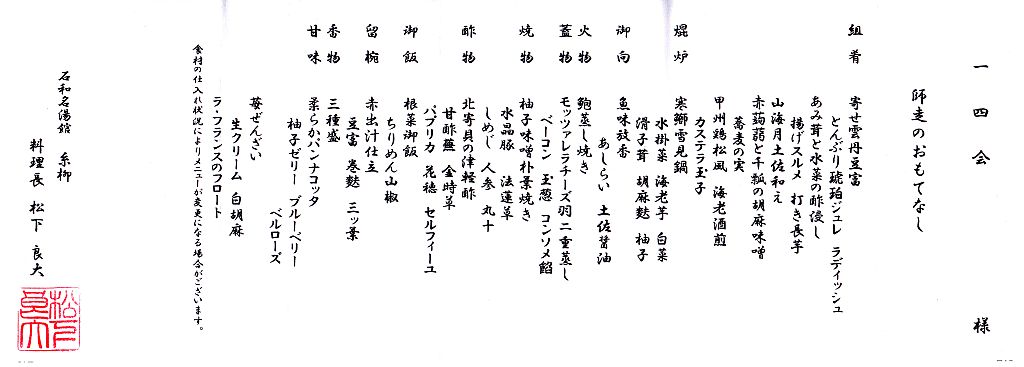 一四会 様
師走のおもてなし
組肴 寄せ雲丹豆富
とんぶり琥珀ジュレ ラディッシュ
あみ茸と水菜の酢浸し
揚げスルメ 打き長芋
山海月土佐和え
赤蒟蒻と干瓢の胡麻味噌
蕎麦の実
甲州鶏松風 海老酒煎
カステラ玉子
焜炉 寒鰤雪見鍋
水掛菜 海老芋 白菜
滑子茸 胡麻麩 柚子
御向 魚味致香
あしらい 土佐醤油
火物 鮑蒸し焼き
蓋物 モッツァレラチーズ羽二重蒸し
ベーコン 玉葱 コンソメ餡
焼物 柚子味噌朴葉焼き
水晶豚 法蓮草
しめじ 人参 丸十
酢物 北寄貝の津軽酢
甘酢蕪 金時草
パプリカ 花穂 セルフィーユ
御飯 根菜御飯
ちりめん山椒
留椀 赤出汁仕立
豆富 巻麩 三ッ葉
香物 三種盛
甘味 柔らかパンナコッタ
柚子ゼリー ブルーベリー
ベルローズ
苺ぜんざい
生クリーム 白胡麻
ラ・フランスのフロート
食材の仕入れ状況によりメニューが変更になる場合がございます。
石和名湯館 糸柳
料理長 松下 良大
松下良大